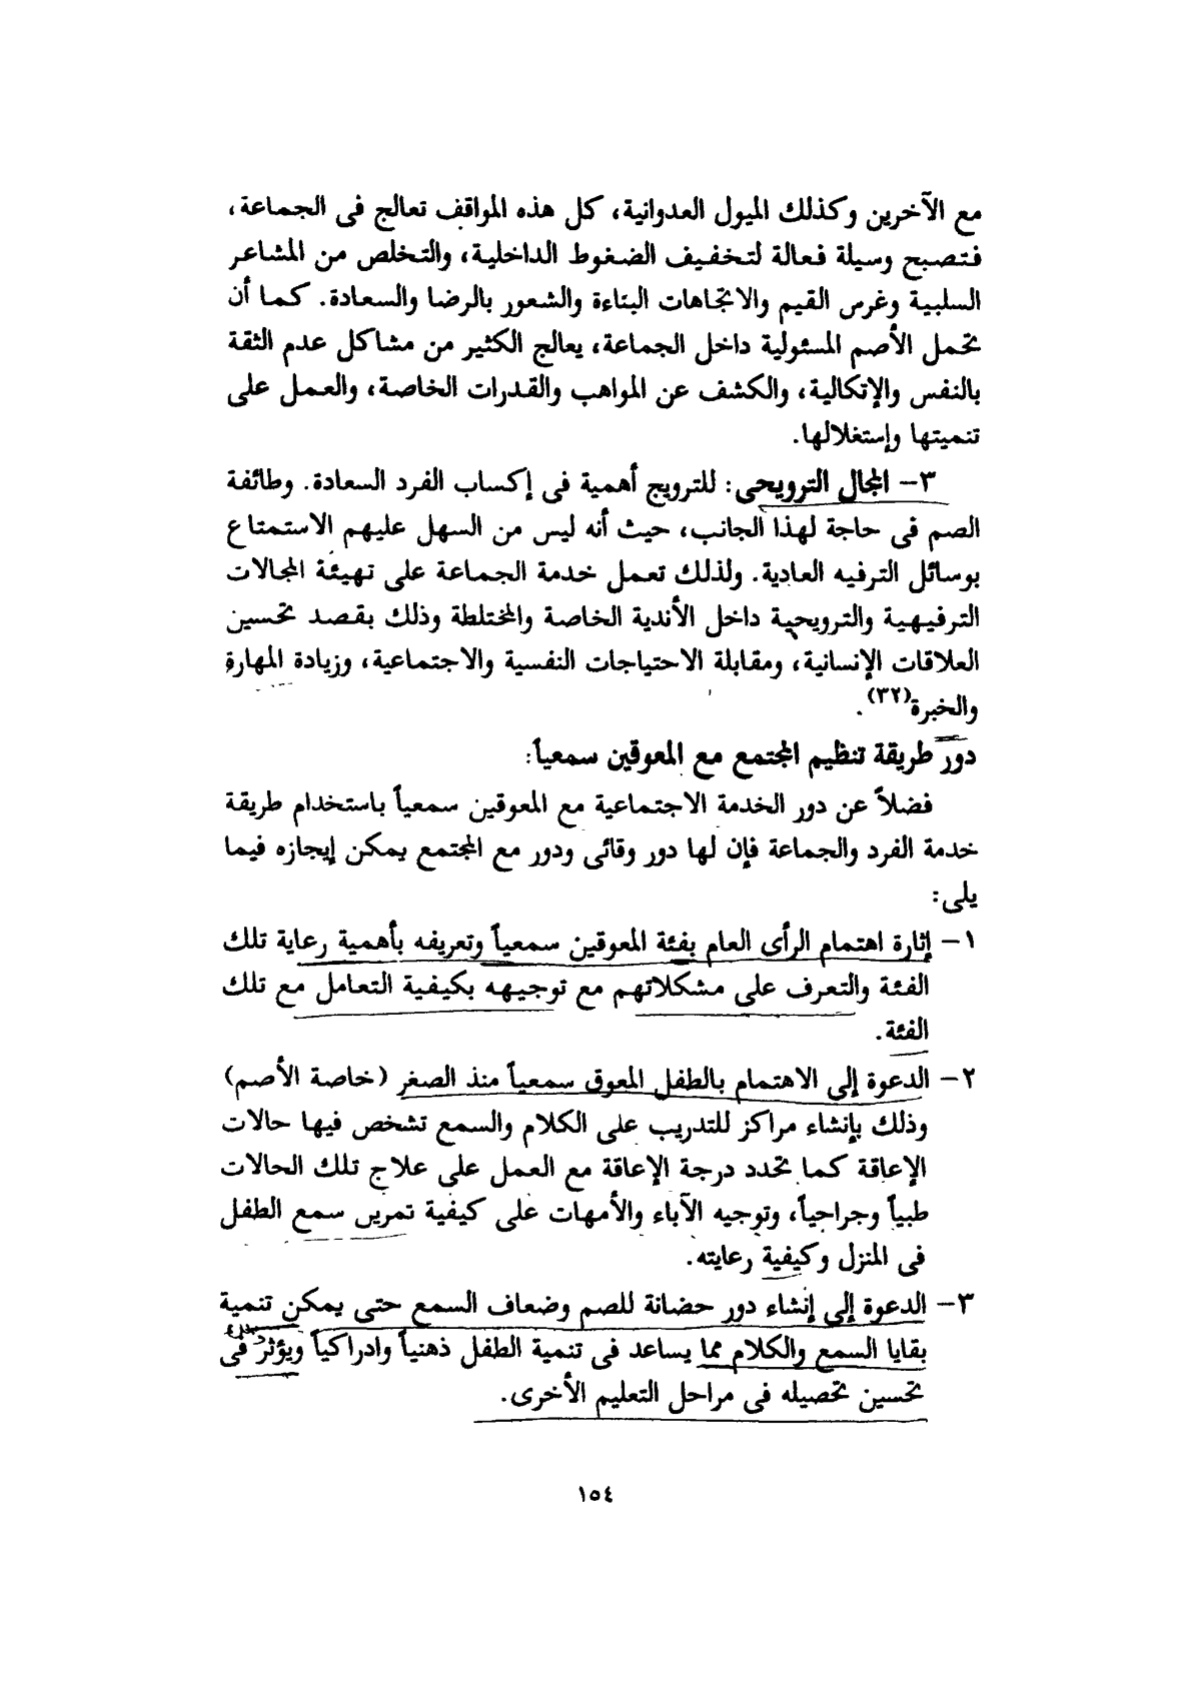 مع الآخرين وكذلك الميول العدوانية، كل هذه المواقف تعالج فى الجماعة،
فتصبح وسيلة فعالة لتخفيف الضغوط الداخلية، والتخلص من المشاعر
السلبية وغرس القيم والاتجاهات البناءة والشعور بالرضا والسعادة. كما أن
تحمل الأصم المسئولية داخل الجماعة، يعالج الكثير من مشاكل عدم الثقة
بالنفس والإتكالية، والكشف عن المواهب والقدرات الخاصة، والعمل على
تنميتها وإستغلالها.
٣- المجال الترويحى: للترويج أهمية فى إكساب الفرد السعادة. وطائفة
الصم فى حاجة لهذا الجانب، حيث أنه ليس من السهل عليهم الاستمتاع
بوسائل الترفيه العادية. ولذلك تعمل خدمة الجماعة على تهيئة المجالات
الترفيهية والترويحية داخل الأندية الخاصة والمختلطة وذلك بقصد تحسين
العلاقات الإنسانية، ومقابلة الاحتياجات النفسية والاجتماعية، وزيادة المهارة
والخبرة(٣٢).
دور طريقة تنظيم المجتمع مع المعوقين سمعياً:
فضلاً عن دور الخدمة الاجتماعية مع المعوقين سمعياً باستخدام طريقة
خدمة الفرد والجماعة فإن لها دور وقائى ودور مع المجتمع يمكن إيجازه فيما
يلى:
١- إثارة اهتمام الرأى العام بفئة المعوقين سمعياً وتعريفه بأهمية رعاية تلك
الفئة والتعرف على مشكلاتهم مع توجيهه بكيفية التعامل مع تلك
الفئة.
٢- الدعوة إلى الاهتمام بالطفل المعوق سمعياً منذ الصغر (خاصة الأصم)
وذلك بإنشاء مراكز للتدريب على الكلام والسمع تشخص فيها حالات
الإعاقة كما تحدد درجة الإعاقة مع العمل على علاج تلك الحالات
طبياً وجراحياً، وتوجيه الآباء والأمهات على كيفية تمرين سمع الطفل
فى المنزل وكيفية رعايته.
٣- الدعوة إلى إنشاء دور حضانة للصم وضعاف السمع حتى يمكن تنمية
بقايا السمع والكلام مما يساعد فى تنمية الطفل ذهنياً وادراكياً ويؤثر فى
تحسين تحصيله فى مراحل التعليم الأخرى.
١٥٤